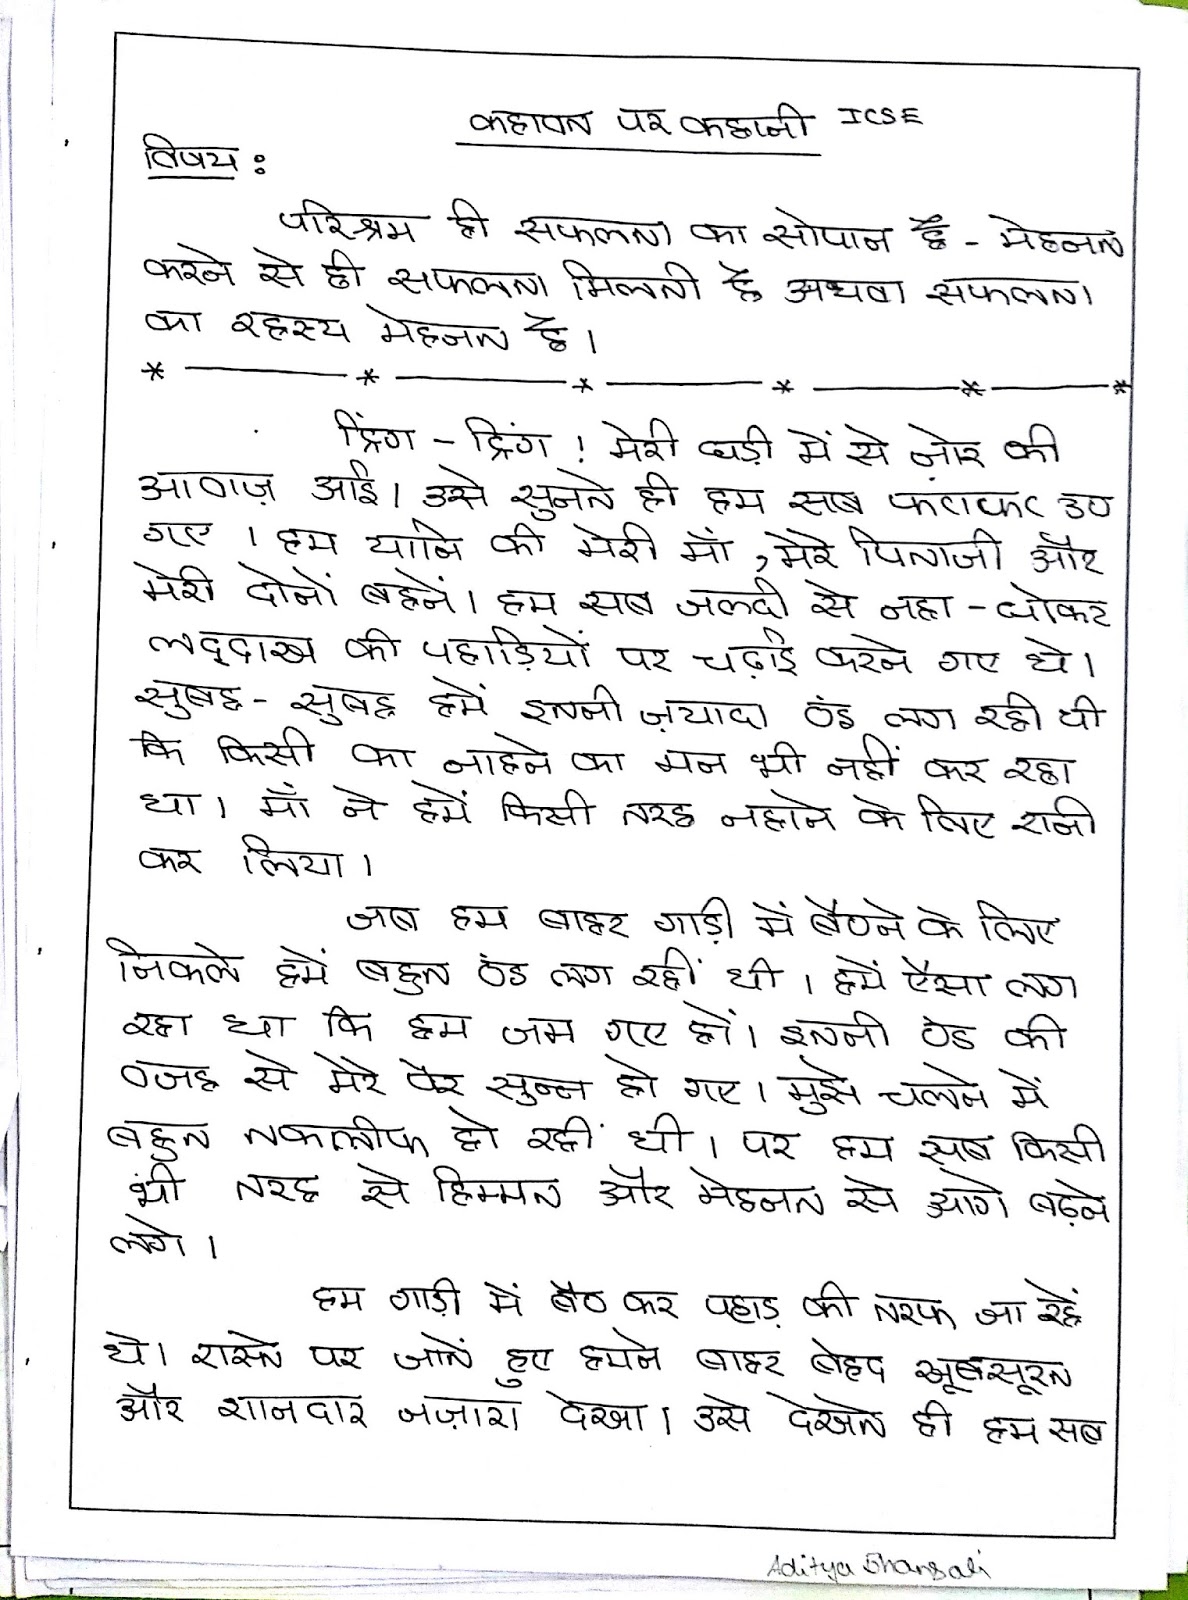 कहावत पर कहानी ICSE
विषय :
परिश्रम ही सफलता का सोपान है - मेहनत
करने से ही सफलता मिलती है अथवा सफलता
का रहस्य मेहनत है।
* ——— * ——— * ——— * ——— * ——— *
ट्रिंग - ट्रिंग ! मेरी घड़ी में से ज़ोर की
आवाज़ आई। उसे सुनते ही हम सब फटाफट उठ
गए । हम यानि की मेरी माँ , मेरे पिताजी और
मेरी दोनों बहनें। हम सब जलदी से नहा - धोकर
लद्दाख की पहाड़ियों पर चढ़ाई करने गए थे।
सुबह - सुबह हमें इतनी ज़यादा ठंड लग रही थी
कि किसी का नाहने का मन भी नहीं कर रहा
था। माँ ने हमें किसी तरह नहाने के लिए राजी
कर लिया।
जब हम बाहर गाड़ी में बैठने के लिए
निकले हमें बहुत ठंड लग रहीं थी । हमें ऐसा लग
रहा था कि हम जम गए हों। इतनी ठंड की
वजह से मेरे पैर सुन्न हो गए। मुझे चलने में
बहुत तकलीफ हो रहीं थी । पर हम सब किसी
भी तरह से हिम्मत और मेहनत से आगे बढ़ने
लगे ।
हम गाड़ी में बैठ कर पहाड़ की तरफ जा रहें
थे। रास्ते पर जातें हुए हमने बाहर बेहद खूबसूरत
और शानदार नज़ारा देखा। उसे देखते ही हम सब
Aditya Bhansali